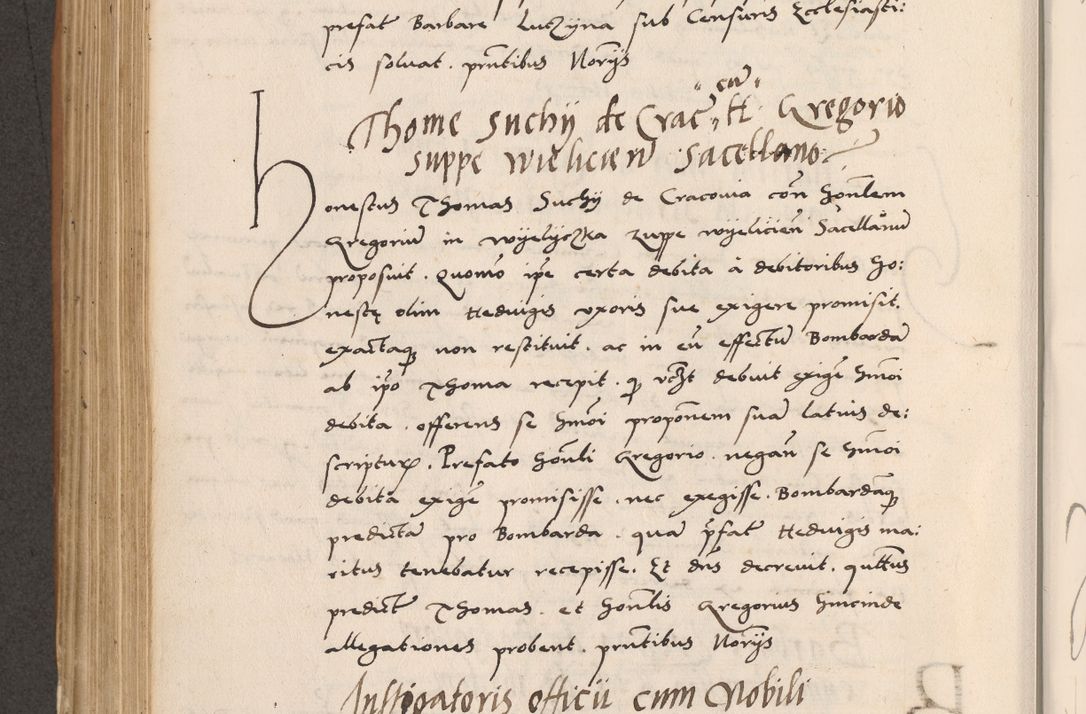 prefat Barbare Luczyna sub Censuris Ecclesiasti:
cis soluat. pr̃ntibus Norijs
Thome Suchij de Crac̃ cũ H Gregorio
suppe wielicien̄ Sacellano
Honestus Thomas Suchij de Cracouia con̄ hon̄lem
Gregoriũ in wijelijczka zuppe wijelicien̄ Sacellanũ
proposuit. Quomõ ip̃e certa debita à debitoribus ho:
nestę olim Hedwigis vxoris sue exigere promisit.
exactaq̃ non restituit. ac in eũ effectũ Bombardã
ab ip̃o Thoma recepit. debuit exigẽ hm̃oi
debita. offerens se hm̃oi propon̄em suã latius de:
scripturꝝ. Prefato hon̄li Gregorio. negan̄ se hm̃oi
debita exigẽ promisisse. nec exegisse. Bombardãq̃
predictã pro Bombarda. quã p̃fat Hedwigis ma:
ritus tenebatur recepisse. Et dn̄s decreuit. qũttus
predict Thomas. et hon̄lis Gregorius hincinde
allegationes probent. pr̃ntibus Norijs
Instigatoris officii cum Nobili